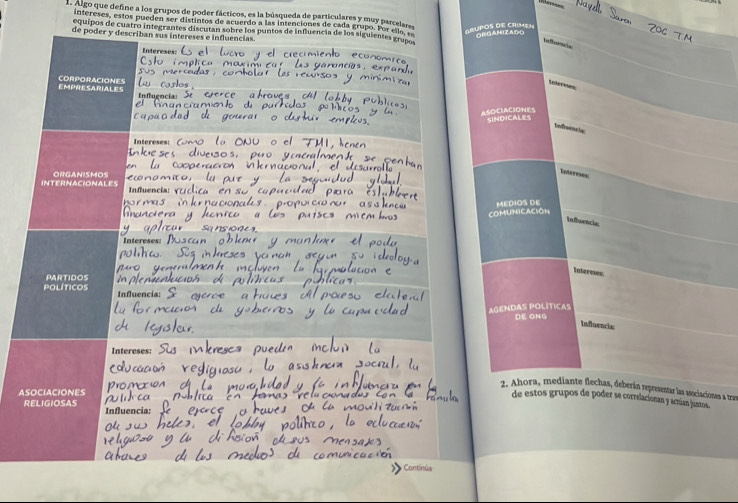 1. Algo que define a los grupos de poder fácticos, es la búsqueda de particulares y muy particulares
intereses, estos pueden ser distintos de acuerdo a las intenciones de cada grupo. Por ello, en
equipos de cuatro integrantes discutan sobre los puntos de influencia de los siguientes grupos
de poder y describan sus intereses e influencias.
CORPORACIONES
EMPRESARIALES
Intereses: Es el lucro y el crecimiento economico
Esto implica maximizar las ganancias, expandir
sus mercados, controlar los recursos y minimizar
los costos.
Influencia: Se ejerce atraves del lobby publicos,
el financiamiento de partidos politicos y la
capacidad de generar o destruir empleos.
ORGANISMOS
INTERNACIONALES
Intereses: Como la ONU o el FMI, tienen
intereses diversos, pero generalmente se centran
en la cooperacion internacional, el desarrollo
economico, la paz y la seguridad global.
Influencia: radica en su capacidad para establecer
normas internacionales, proporcionar asistencia
financiera y tecnica a los paises miembros
y aplicar sansiones.
PARTIDOS
POLÍTICOS
Intereses: Buscan obtener y mantener el poder
politico. Sus intereses varian, segun su ideologia
pero generalmente incluyen la formulacion e
implementacion de politicas publicas.
Influencia: Se ejerce atraves del proceso electoral
la formacion de gobiernos y la capacidad
de legislar.
ASOCIACIONES
RELIGIOSAS
Intereses: Sus intereses pueden incluir la
educacion religiosa, la asistencia social, la
promocion de la moralidad y la influencia en la
politica publica en temas relacionados con la familia
Influencia: Se ejerce a traves de la movilizacion
de sus fieles, el lobby politico, la educacion
religiosa y la difusion de sus mensajes
atraves de los medios de comunicacion
Continúa
Nayelli Saron 20C TM
GRUPOS DE CRIMEN
ORGANIZADO
Intereses:
Influencia:
ASOCIACIONES
SINDICALES
Intereses:
Influencia:
MEDIOS DE
COMUNICACIÓN
Intereses:
Influencia:
AGENDAS POLÍTICAS
DE ONG
Intereses:
Influencia:
2. Ahora, mediante flechas, deberán representar las asociaciones a
de estos grupos de poder se correlacionan y actúan juntos.